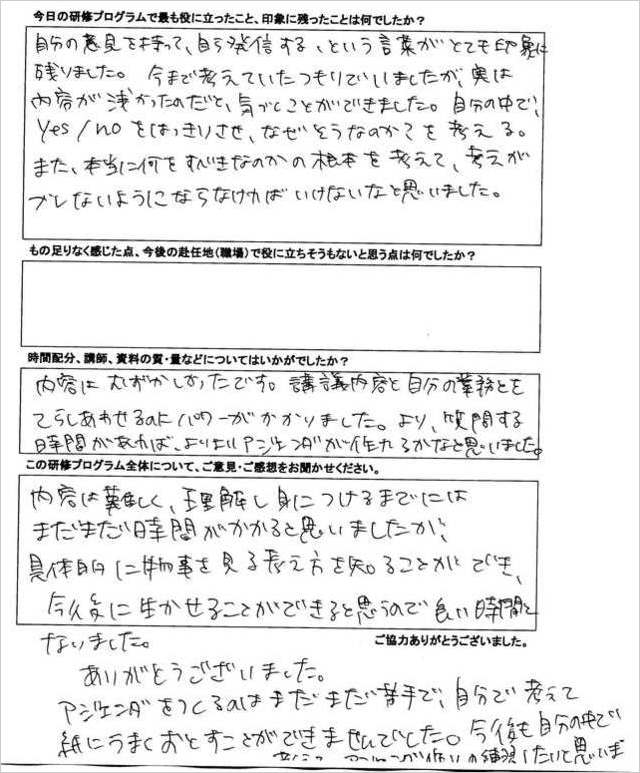 今日の研修プログラムで最も役に立ったこと、印象に残ったことは何でしたか？
自分の意見を持って、自ら発信する、という言葉がとても印象に
残りました。今まで考えていたつもりでいましたが、実は
内容が浅かったのだと、気づくことができました。自分の中で、
Yes/noをはっきりさせ、なぜそうなのか?を考える。
また、本当に何をすべきなのかの根本を考えて、考えが
ブレないようにならなければいけないなと思いました。
もの足りなく感じた点、今後の赴任地（職場）で役に立ちそうもないと思う点は何でしたか？
時間配分、講師、資料の質・量などについてはいかがでしたか？
内容はむずかしかったです。講議内容と自分の業務とを
てらしあわせるのにパワーがかかりました。より、質問する
時間があれば、よりよいアジェンダが作れるかなと思いました。
この研修プログラム全体について、ご意見・ご感想をお聞かせください。
内容は難しく、理解し身につけるまでには
まだまだ時間がかかると思いましたが、
具体的に物事を見る考え方を知ることができ、
今後に生かせることができると思うので良い時間と
なりました。
ご協力ありがとうございました。
ありがとうございました。
アジェンダをつくるのはまだまだ苦手で、自分で考えて
紙にうまくおとすことができませんでした。今後も自分の中で
の練習したいと思いま